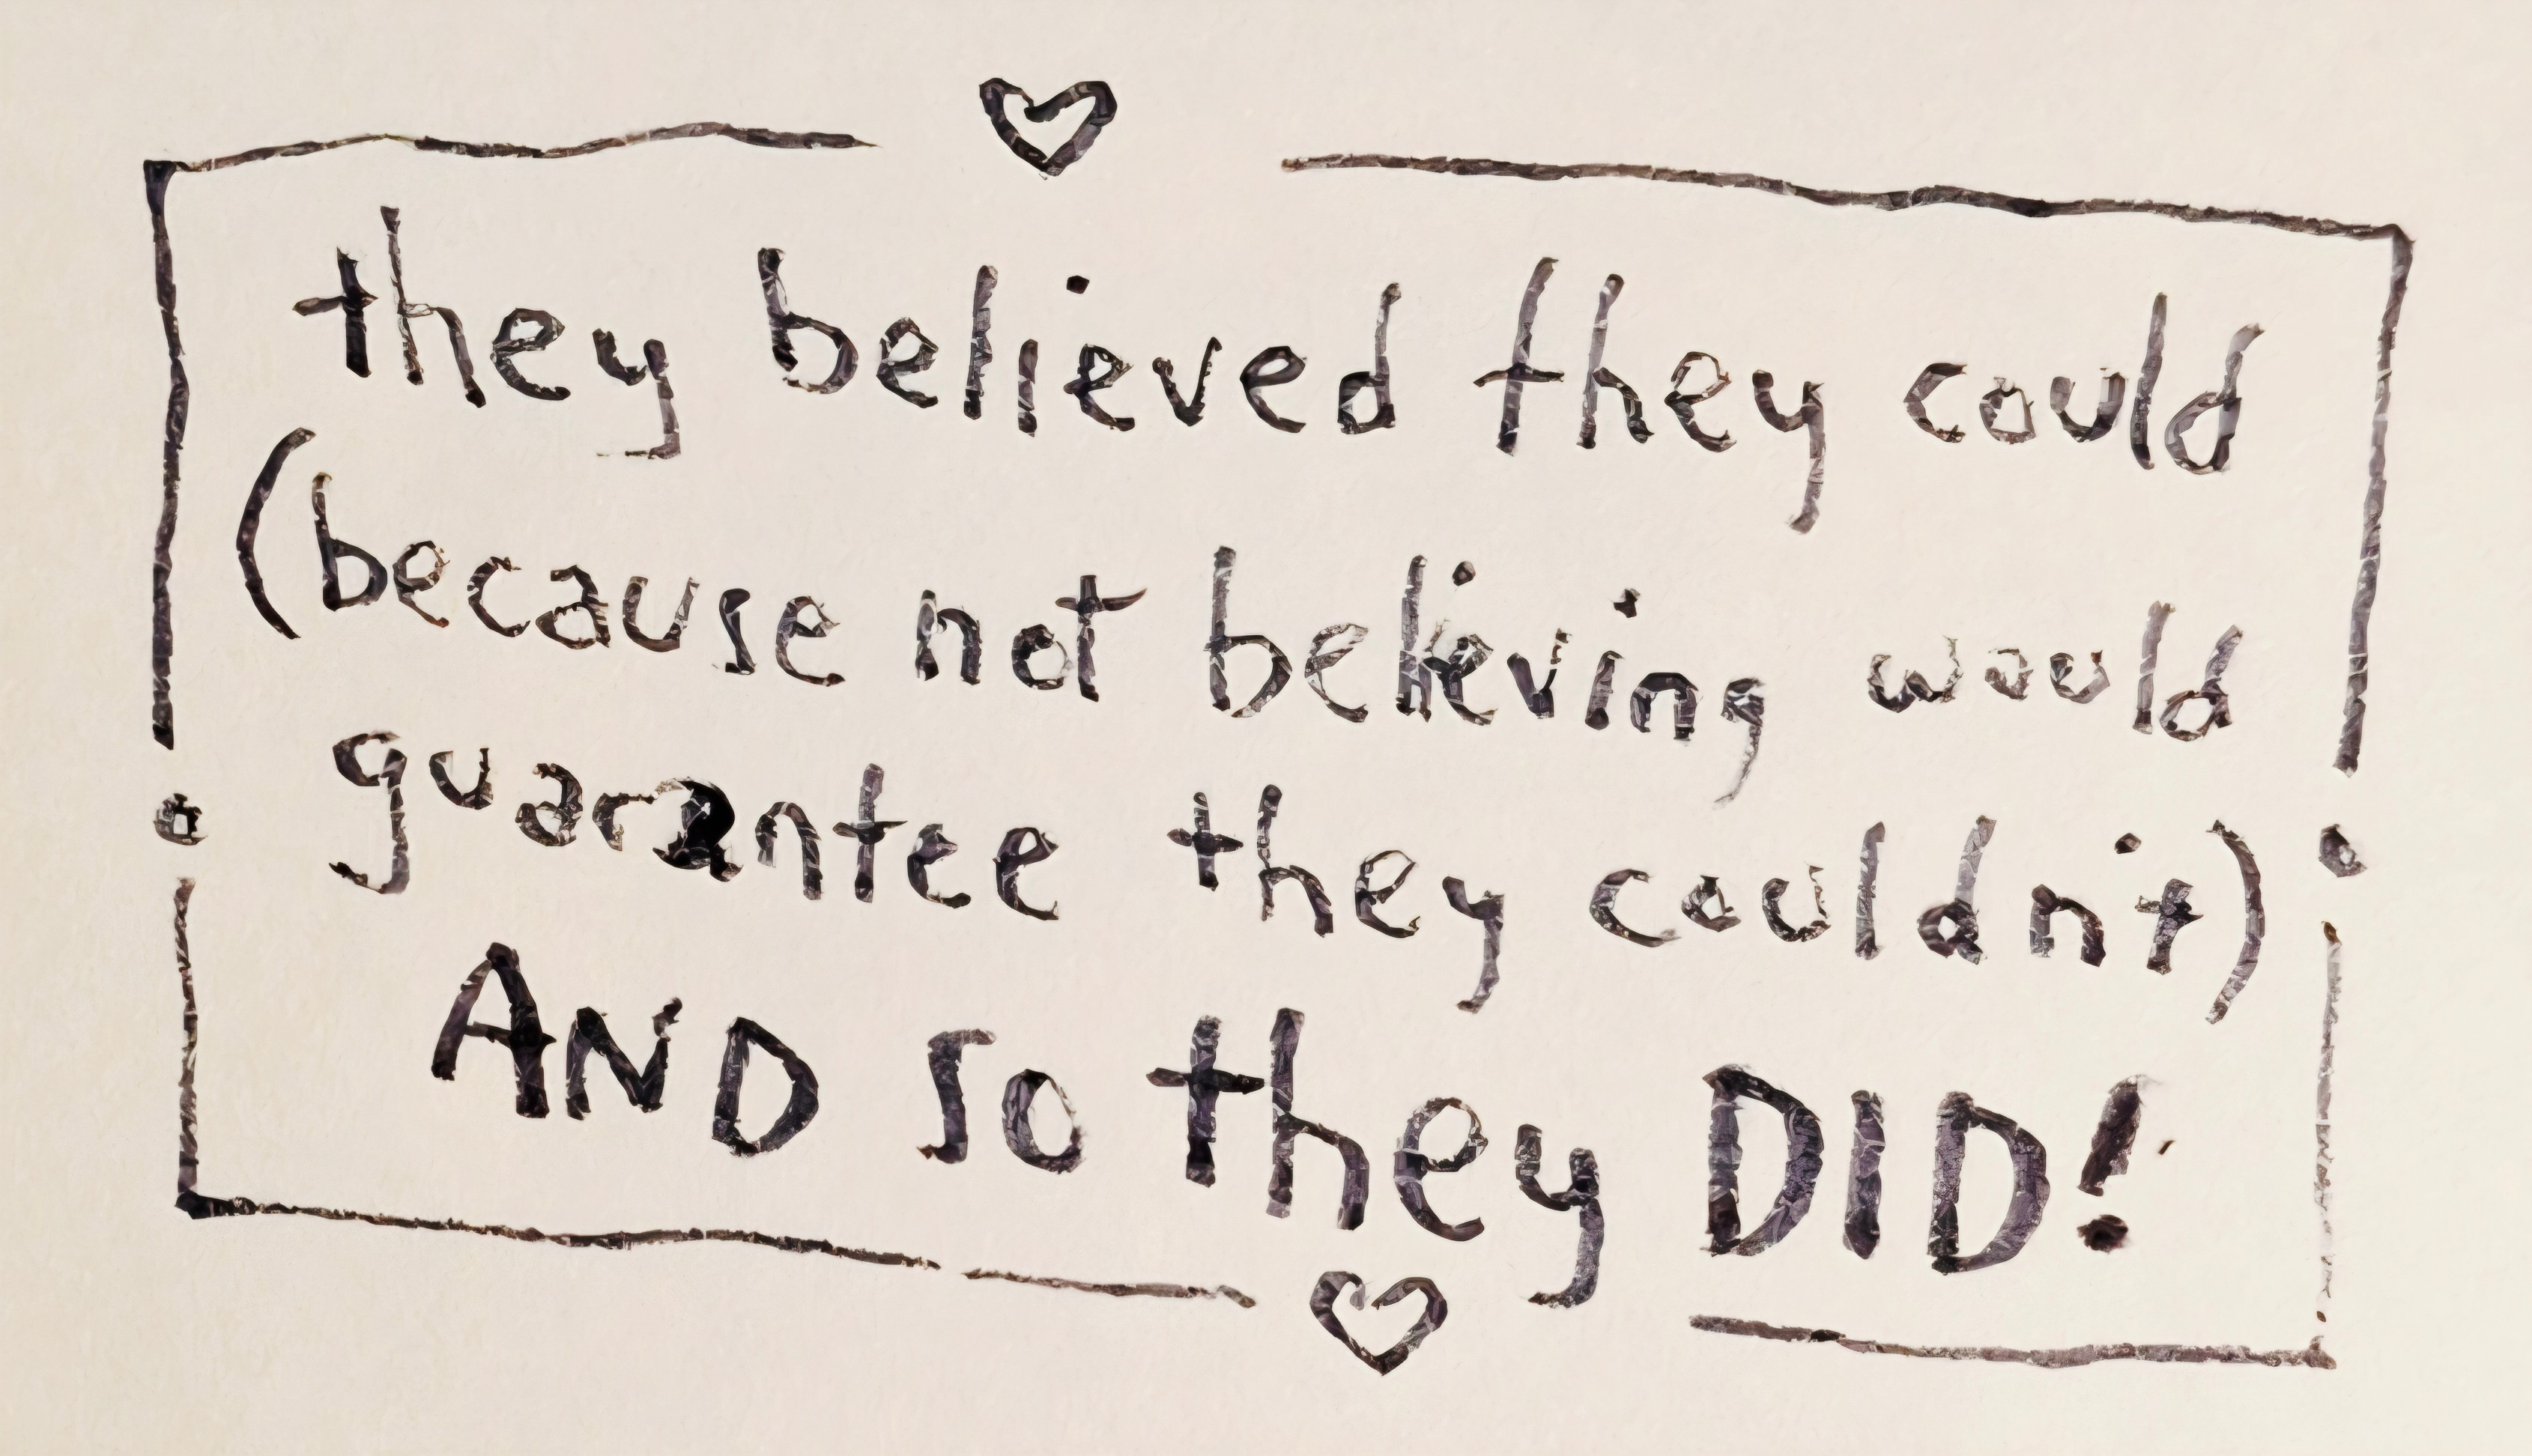 they believed they could
(because not believing would
guarantee they couldn't)
AND so they DID!